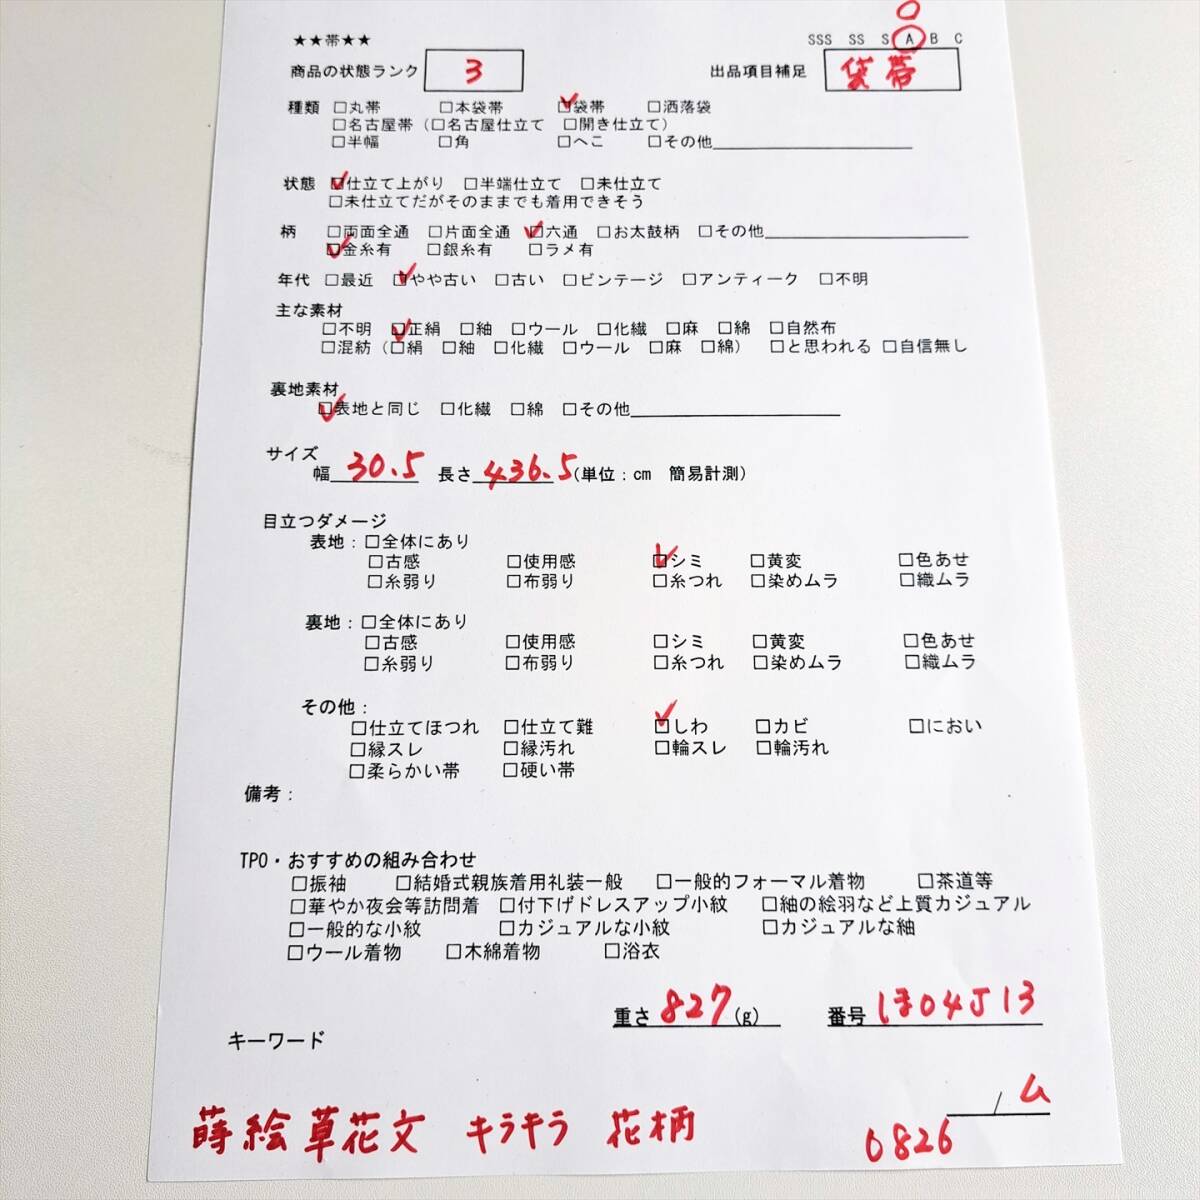 ★★帯★★ SSS SS S A B C
商品の状態ランク 3 出品項目補足 袋帯
種類 □丸帯 □本袋帯 □袋帯 □洒落袋
□名古屋帯（□名古屋仕立て □開き仕立て）
□半幅 □角 □へこ □その他
状態 □仕立て上がり □半端仕立て □未仕立て
□未仕立てだがそのままでも着用できそう
柄 □両面全通 □片面全通 □六通 □お太鼓柄 □その他
□金糸有 □銀糸有 □ラメ有
年代 □最近 □やや古い □古い □ビンテージ □アンティーク □不明
主な素材
□不明 □正絹 □紬 □ウール □化繊 □麻 □綿 □自然布
□混紡（□絹 □紬 □化繊 □ウール □麻 □綿） □と思われる □自信無し
裏地素材
□表地と同じ □化繊 □綿 □その他
サイズ
幅 30.5 長さ 436.5 (単位：cm 簡易計測)
目立つダメージ
表地：□全体にあり
□古感 □使用感 □シミ □黄変 □色あせ
□糸弱り □布弱り □糸つれ □染めムラ □織ムラ
裏地：□全体にあり
□古感 □使用感 □シミ □黄変 □色あせ
□糸弱り □布弱り □糸つれ □染めムラ □織ムラ
その他：
□仕立てほつれ □仕立て難 □しわ □カビ □におい
□縁スレ □縁汚れ □輪スレ □輪汚れ
□柔らかい帯 □硬い帯
備考：
TPO・おすすめの組み合わせ
□振袖 □結婚式親族着用礼装一般 □一般的フォーマル着物 □茶道等
□華やか夜会等訪問着 □付下げドレスアップ小紋 □紬の絵羽など上質カジュアル
□一般的な小紋 □カジュアルな小紋 □カジュアルな紬
□ウール着物 □木綿着物 □浴衣
重さ 827 (g) 番号 ほ04J13
キーワード
/ ム
蒔絵草花文 キラキラ 花柄 0826